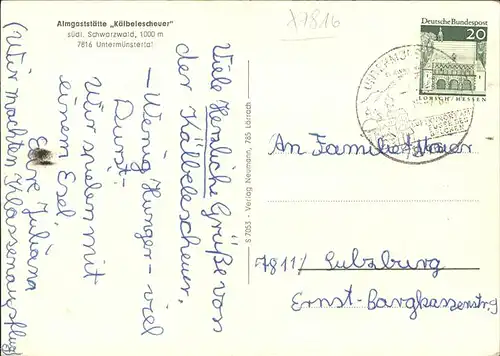 Almgaststätte „Kälbelescheuer"
südl. Schwarzwald, 1000 m
7816 Untermünstertal
X7816
Deutsche Bundespost
20
LORSCH/HESSEN
Viele Herzliche Grüße von
der Kälbelescheuer.
– Wenig Hunger – viel
Durst –
Wir spielen mit
einem Esel
Eure Juliana
(Wir machten Klassenausflug
S 7053 - Verlag Neumann, 785 Lörrach
An Familie
7811/ Sulzburg
Ernst-Bargkassenstr,9